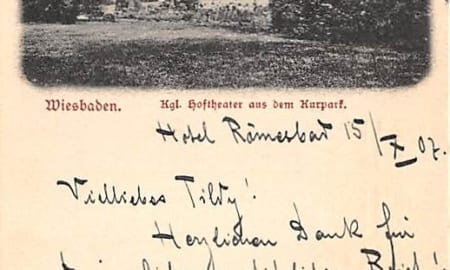 Wiesbaden. Kgl. Hoftheater aus dem Kurpark.
Hotel Römerbad 15/X 07.
Vielliebes Tildy!
Herzlichen Dank für